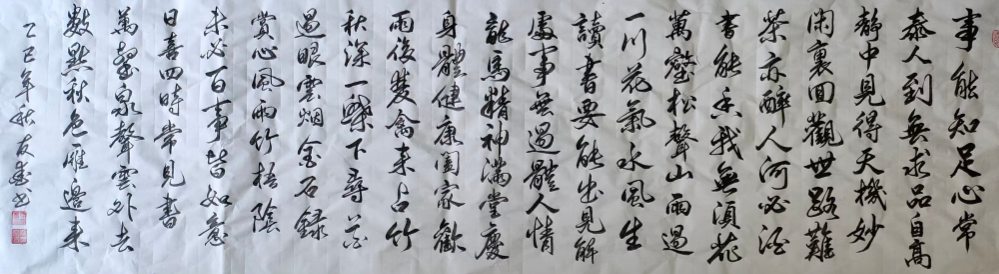 事能知足心常
泰人到無求品自高
靜中見得天機妙
閑裏回觀世路難
茶亦醉人何必酒
書能香我無須花
萬壑松聲山雨過
一川花氣水風生
讀書要能出見解
處事無過體人情
龍馬精神滿堂慶
身體健康闔家歡
雨後雙禽來占竹
秋深一蝶下尋花
過眼雲烟金石錄
賞心風雨竹梧陰
未必百事皆如意
日喜四時常見書
萬壑泉聲雲外去
數點秋色雁邊來
乙巳年秋友書